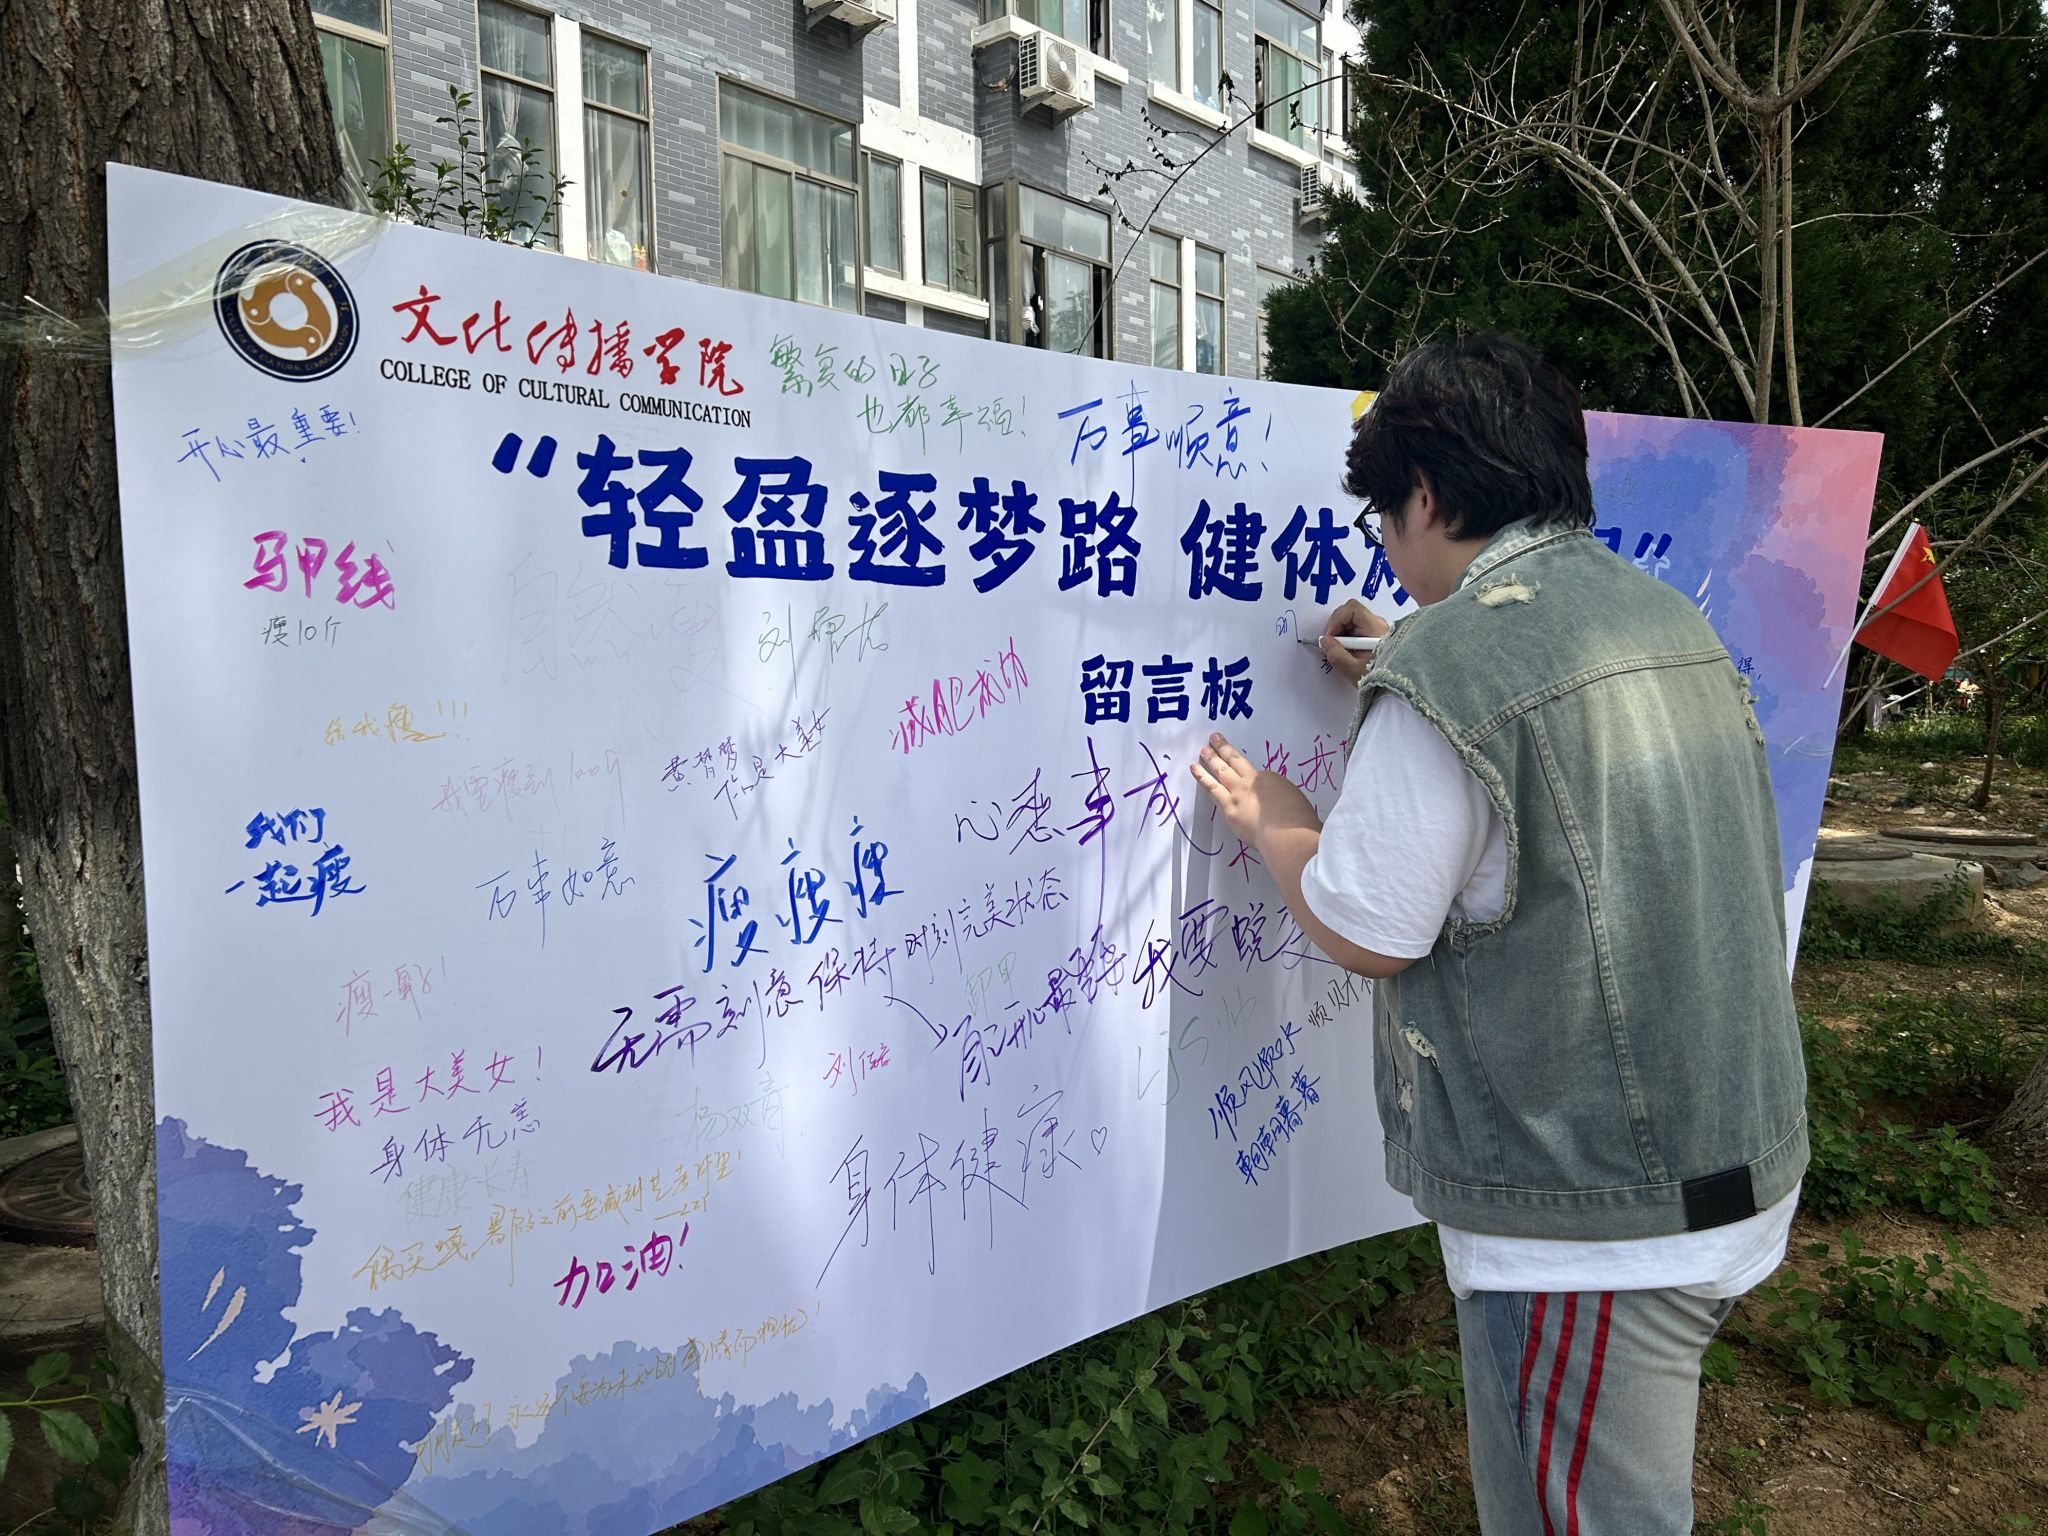 文化传播学院
COLLEGE OF CULTURAL COMMUNICATION
繁复的日子
也都幸福！
万事顺意！
开心最重要！
"轻盈逐梦路 健体
留言板
马甲线
瘦10斤
自然
刘
减肥成功
给我瘦！！！
我要瘦到100斤
黄
你是大美女
我们
一起瘦
万事如意
瘦瘦瘦
心悉事成
我要蜕变
无需刻意保持时刻完美状态
卸甲
自己开心最
瘦一点！
我是大美女！
身体无恙
健康长寿
杨双青
刘
ljs帅
顺风顺水 顺财
身体健康♡
暑假之前要减到
—zzt
加油！
永远不要为未知的事情而担忧！
得,